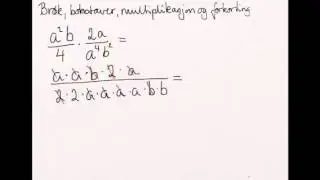 Brøk, bokstaver, multiplikasjon og forkorting
a²b/4 · 2a/a⁴b² =
a·a·b·2·a / 2·2·a·a·a·a·b·b =